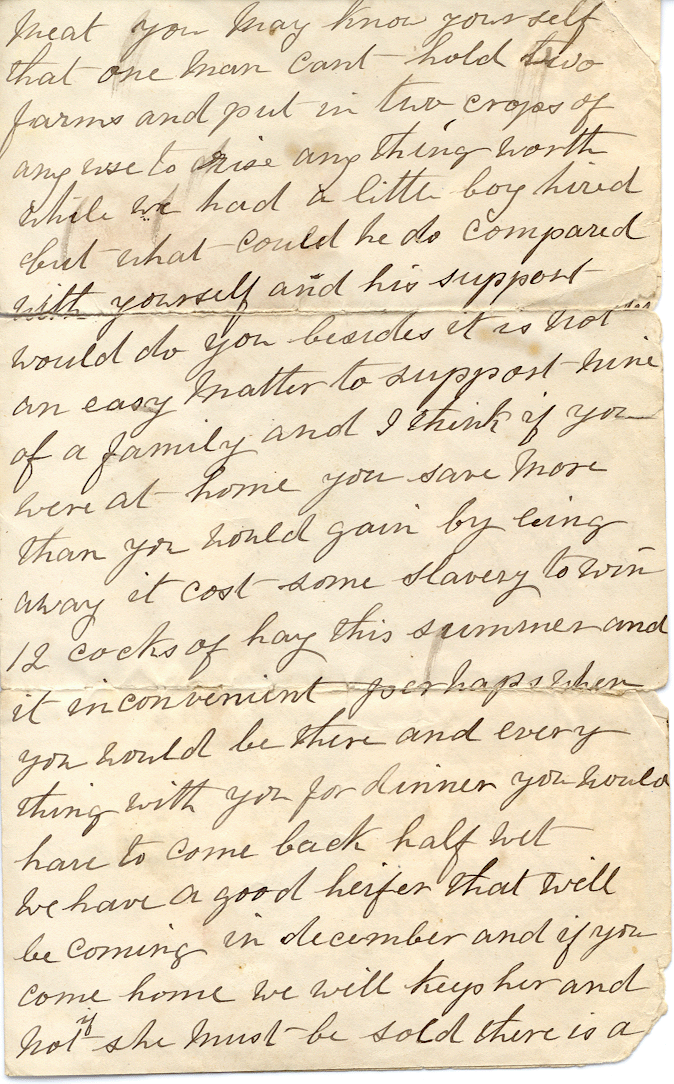 meat you may know yourself
that one man cant hold two
farms and put in two crops of
any use to rise any thing worth
while we had a little boy hired
but what could he do compared
with yourself and his support
would do you besides it is not
an easy matter to support nine
of a family and I think if you
were at home you save more
than you would gain by eing
away it cost some slavery to win
12 cocks of hay this summer and
it inconvenient perhaps when
you would be there and every
thing with you for dinner you would
have to come back half wet
we have a good heifer that will
be coming in december and if you
come home we will keep her and
if
not she must be sold there is a